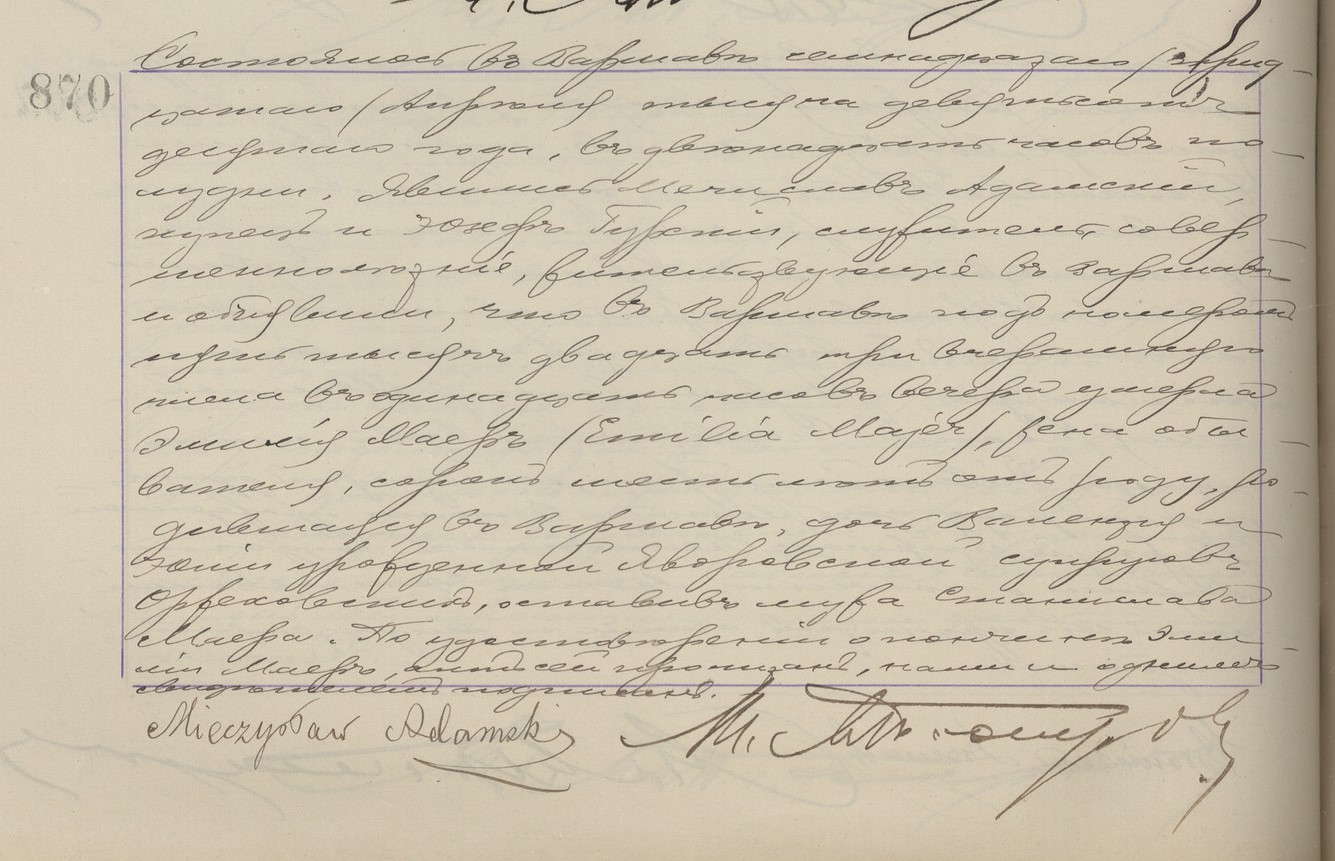 870
Состоялось въ Варшавѣ семнадцатаго /трид-
цатаго/ Апрѣля тысяча девятьсотъ
десятаго года, въ двѣнадцать часовъ по-
лудни. Явились Мечиславъ Адамскій,
купецъ и Юзефъ Гурскій, служитель, совер
шеннолѣтніе, жительствующіе въ Варшавѣ
и объявили, что въ Варшавѣ подъ номеромъ
пять тысячъ двадцать три вчерашняго
числа въ одинадцать часовъ вечера умерла
Эмилія Маеръ /Emilia Majer/, жена обы
вателя, сорокъ шесть лѣтъ отъ роду, ро-
дившаяся въ Варшавѣ, дочь Валенція и
Юліи урожденной Яворовской супруговъ
Оржеховскихъ, оставивъ мужа Станислава
Маера. По удостовѣреніи о кончинѣ Эми
ліи Маеръ, актъ сей прочитанъ, нами и однимъ
свидѣтелемъ подписанъ.
Mieczysław Adamski